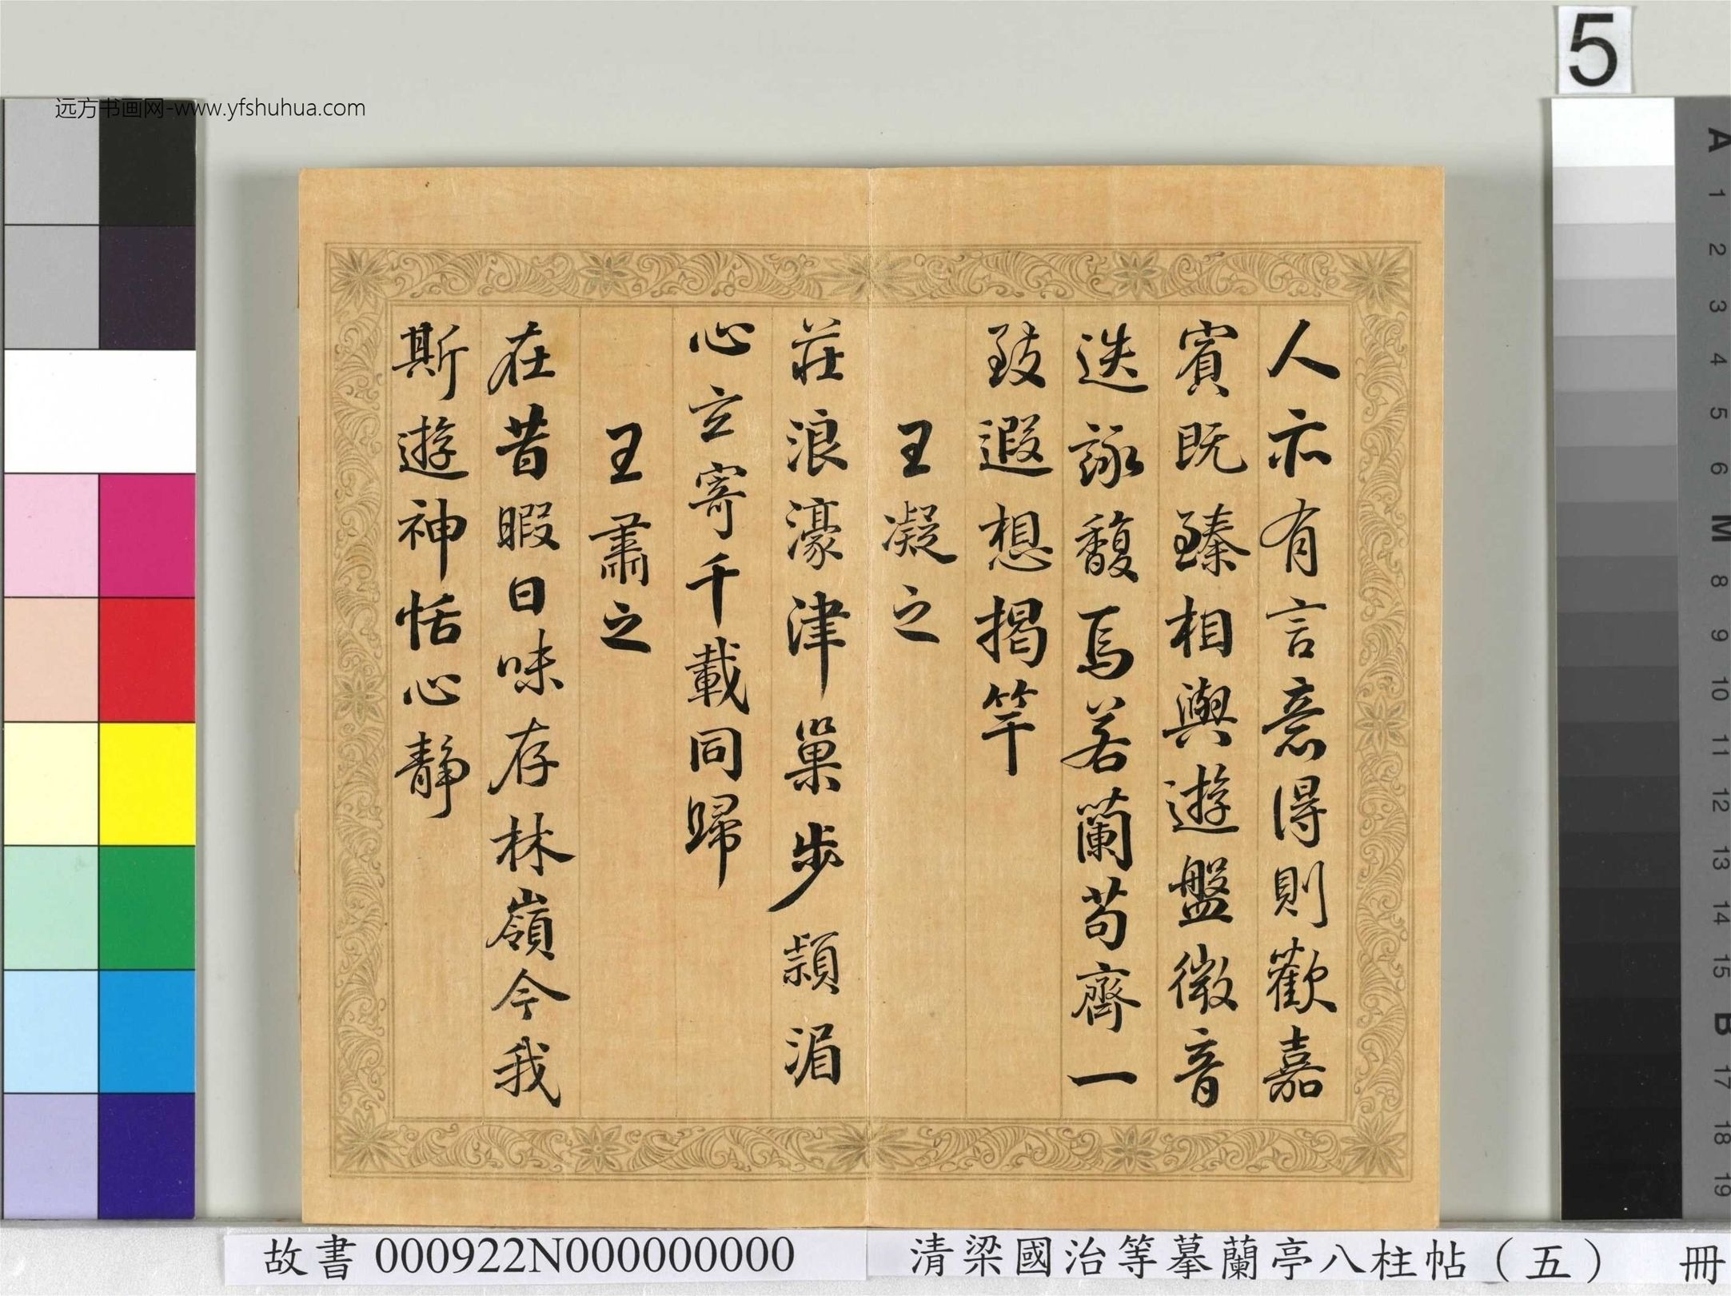 5
远方书画网-www.yfshuhua.com
人亦有言意得則歡嘉
賓既臻相與遊盤微音
迭詠馥焉若蘭苟齊一
致遐想揭竿
王凝之
莊浪濠津巢步潁湄
心立寄千載同歸
王肅之
在昔暇日味存林嶺今我
斯遊神恬心靜
A
1
2
3
4
5
6
M
8
9
10
11
12
13
14
15
B
17
18
19
故書 000922N000000000
清梁國治等摹蘭亭八柱帖（五） 冊